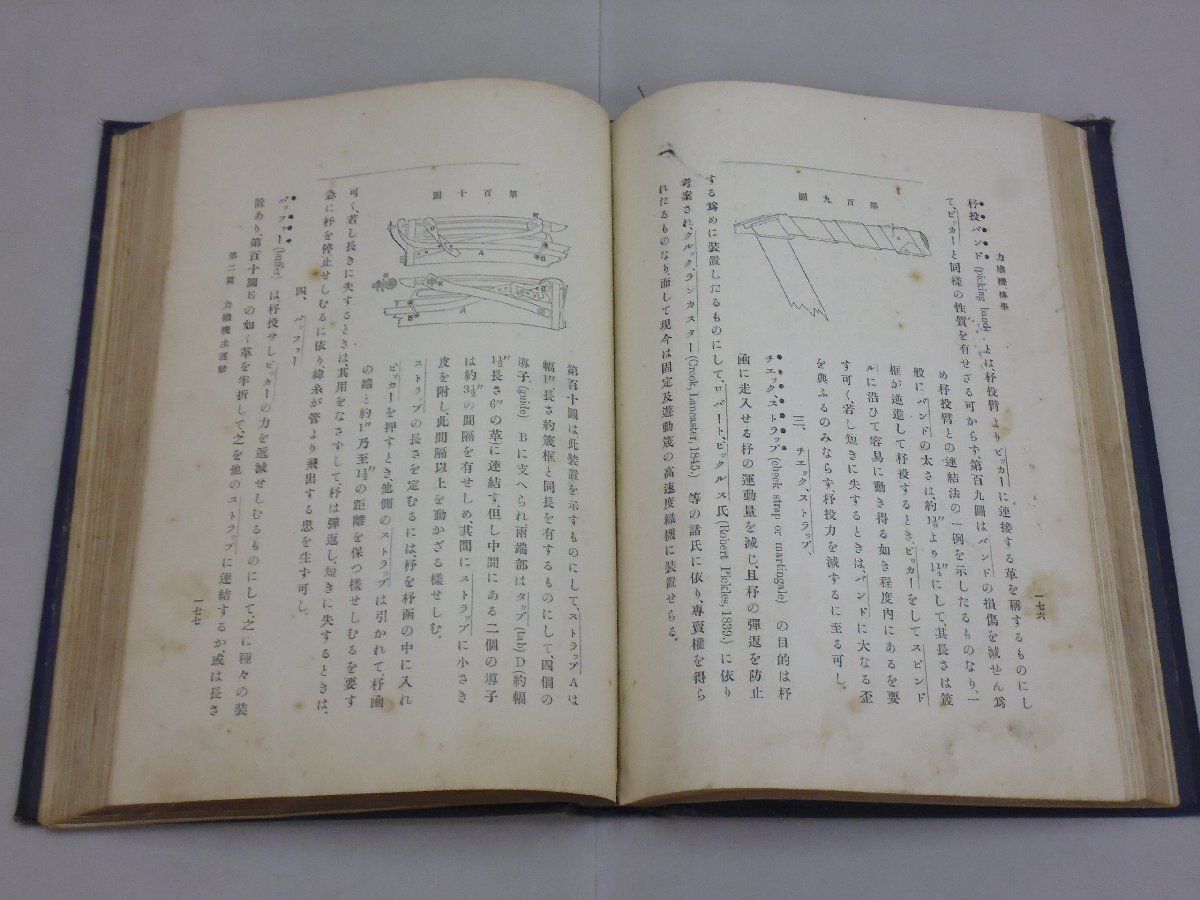 力織機構學
一七六
杼投バンド (picking band) とは、杼投臂よりピッカーに連接する革を稱するものにし
て、ピッカーと同樣の性質を有せざる可からず、第百九圖はバンドの損傷を減せん爲
め杼投臂との連結法の一例を示したるものなり、一
般にバンドの太さは約1¾″より1¼″にして、其長さは筬
框が逆進して杼投するとき、ピッカーをしてスピンド
ルに沿ひて容易に動き得る如き程度內にあるを要
す可く、若し短きに失するときは、バンドに大なる歪
を與ふるのみならず、杼投力を減ずるに至る可し。
第百九圖
三、チエック、ストラップ、
チエック、ストラップ (check strap or martingale) の目的は杼
凾に走入せる杼の運動量を減じ、且杼の彈返を防止
する爲めに裝置したるものにして、ロバート、ピックルス氏 (Robert Pickles, 1839.) に依り
考案され、クルック、ランカスター (Crook, Lancaster, 1845.) 等の諸氏に依り、專賣權を得ら
れたるものなり、而して現今は固定及遊動筬の高速度織機に裝置せらる。
第百十圖
A
B
A
第百十圖は此裝置を示すものにして、ストラップAは
幅1″長さ約筬框と同長を有するものにして、四個の
導子 (guide) Bに支へられ兩端部はタッブ (tab) D約幅
長さ6″の革)に連結す但し中間にある二個の導子
は約3½″の間隔を有せしめ、其間にストラップに小さき
皮を附し、此間隔以上を動かざる樣せしむ。
ストラップの長さを定むるには、杼を杼凾の中に入れ
ピッカーを押すとき、他側のストラップは引かれて、杼凾
の端と約1″乃至1½″の距離を保つ樣せしむるを要す
可く、若し長きに失するときは、其用をなさずして、杼は彈返し、短きに失するときは、
急に杼を停止せしむるに依り、緯糸が管より飛出する患を生ず可し。
四、バッファー
バッファー (buffer) は杼投せしピッカーの力を遞減せしむるものにして、之に種々の裝
置あり、第百十圖Eの如く革を半折して、之を他のストラップに連結するか、或は長さ
第二篇 力織機主運動
一七七